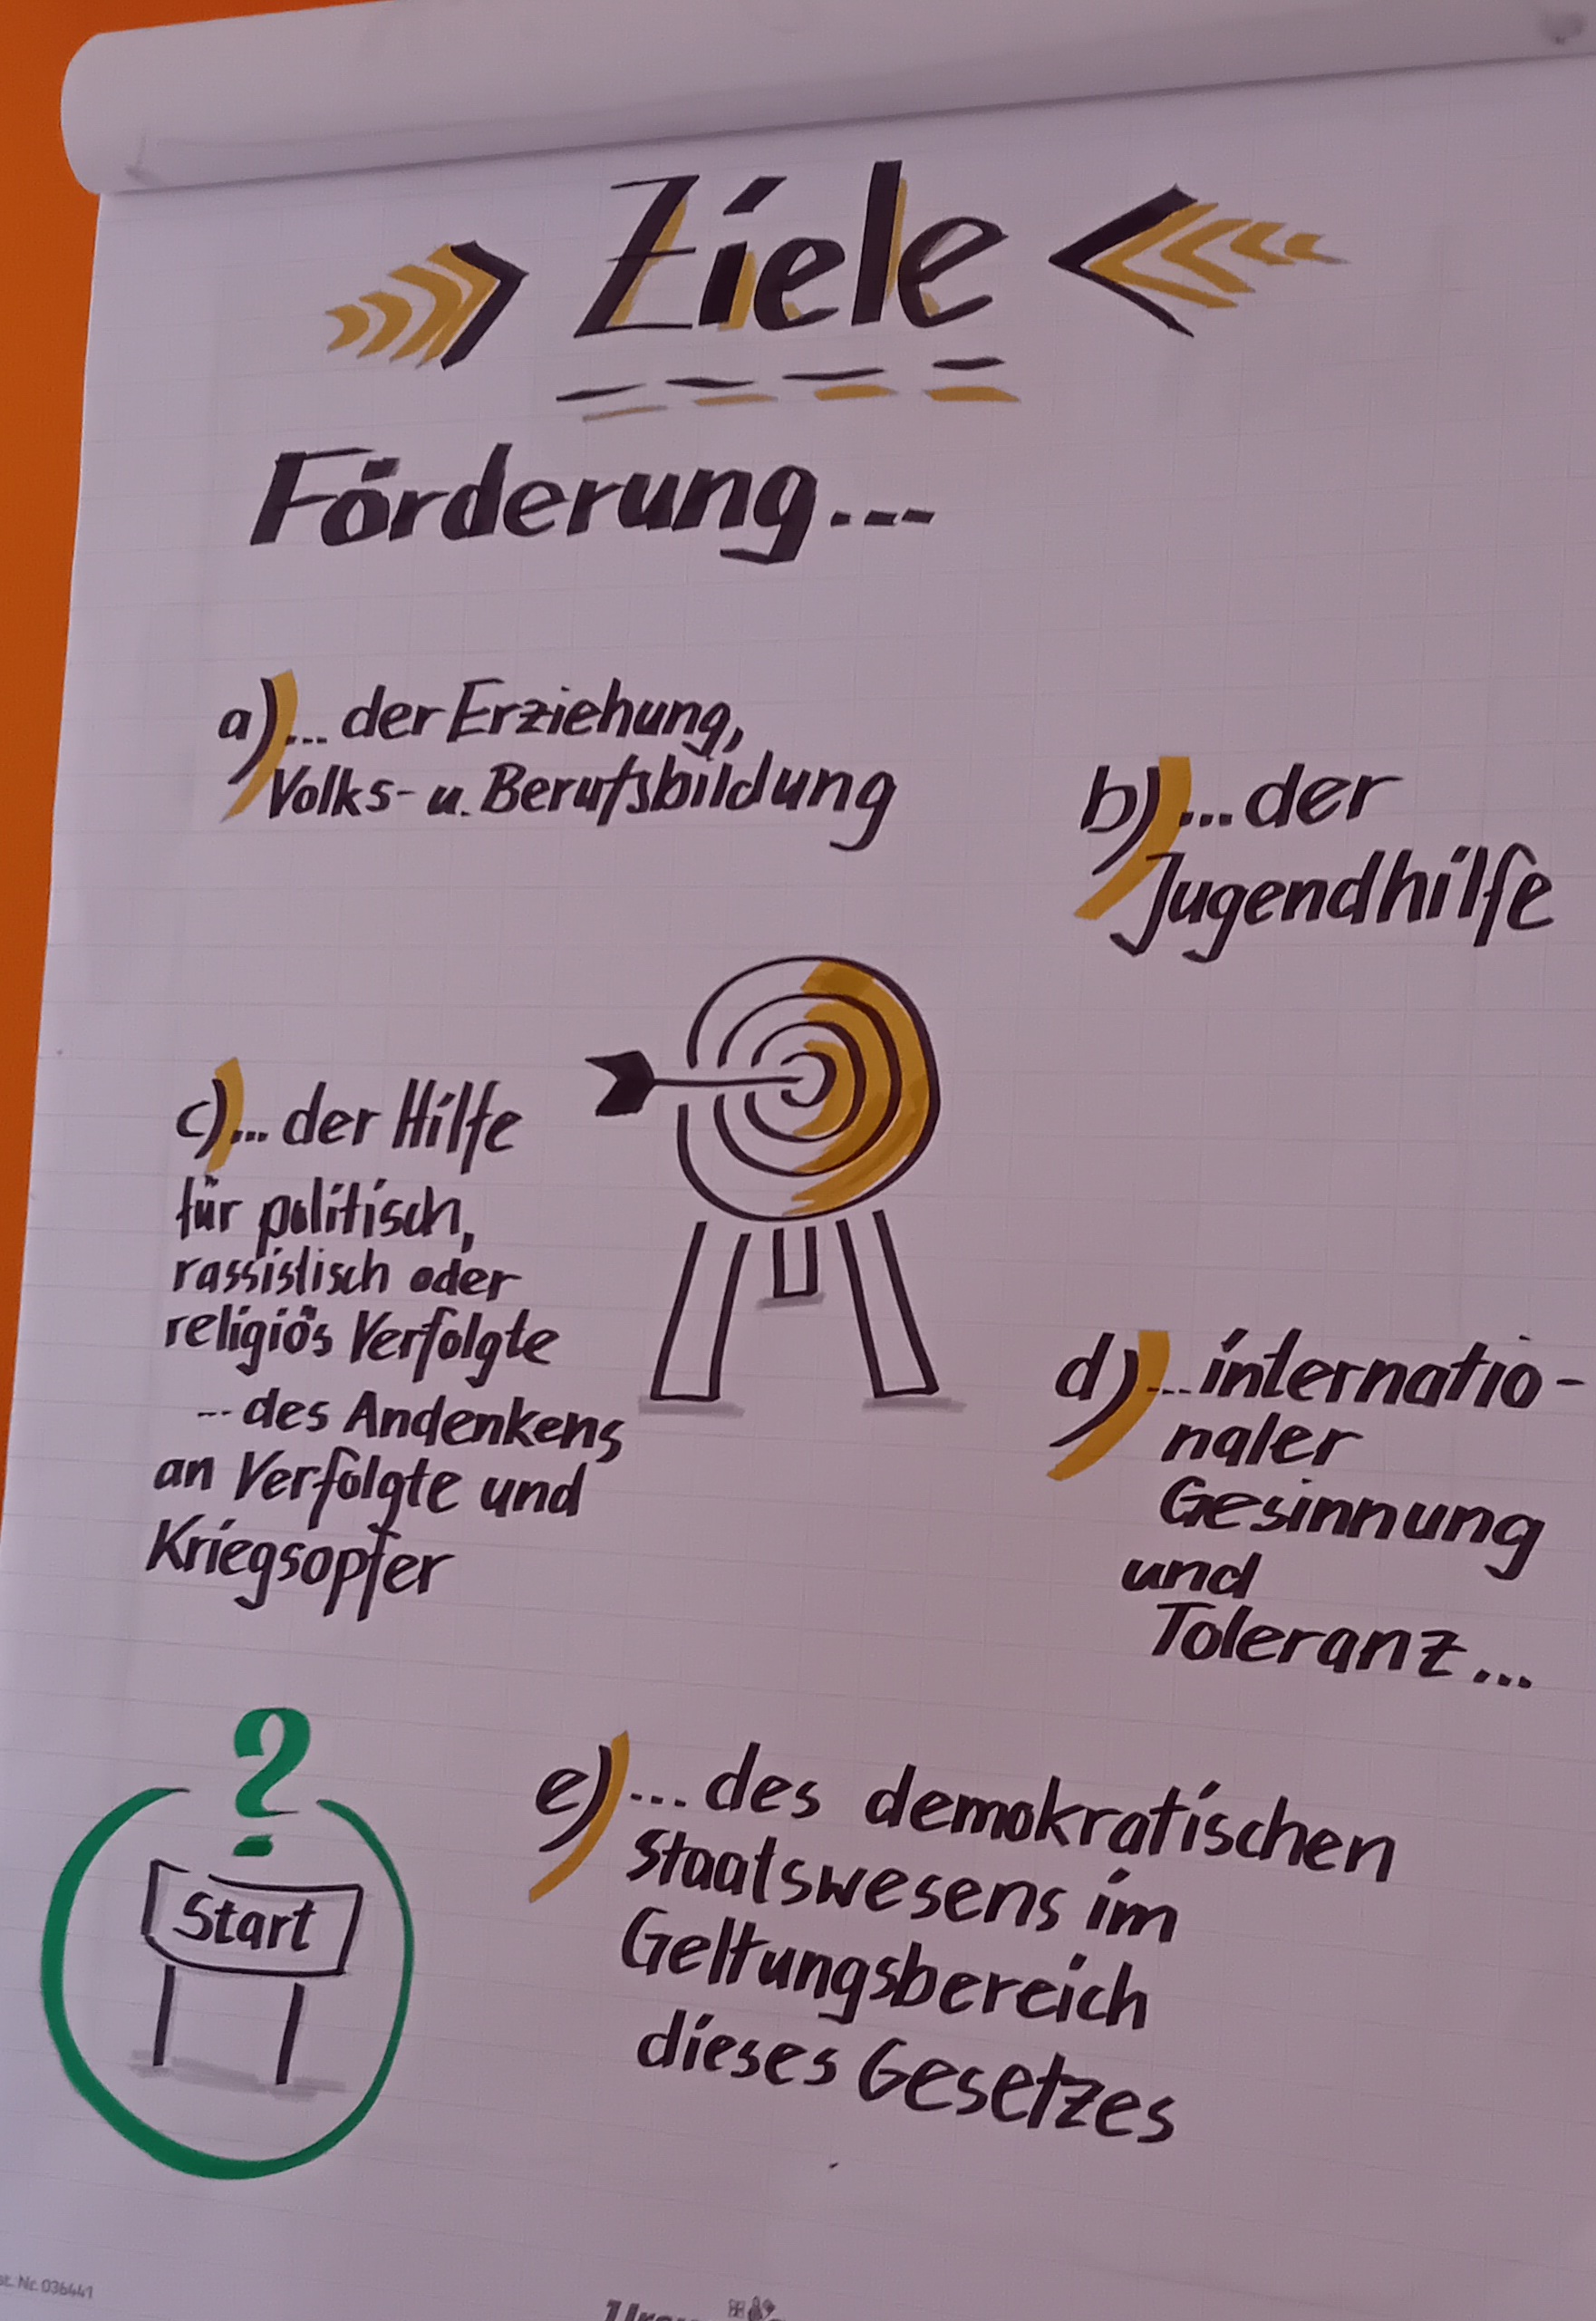 Ziele
Förderung...
a)... der Erziehung,
Volks- u. Berufsbildung
b)... der
Jugendhilfe
c)... der Hilfe
für politisch,
rassistisch oder
religiös Verfolgte
... des Andenkens
an Verfolgte und
Kriegsopfer
d)... internatio-
naler
Gesinnung
und
Toleranz...
e)... des demokratischen
Staatswesens im
Geltungsbereich
dieses Gesetzes
?
Start
Nr. 036441